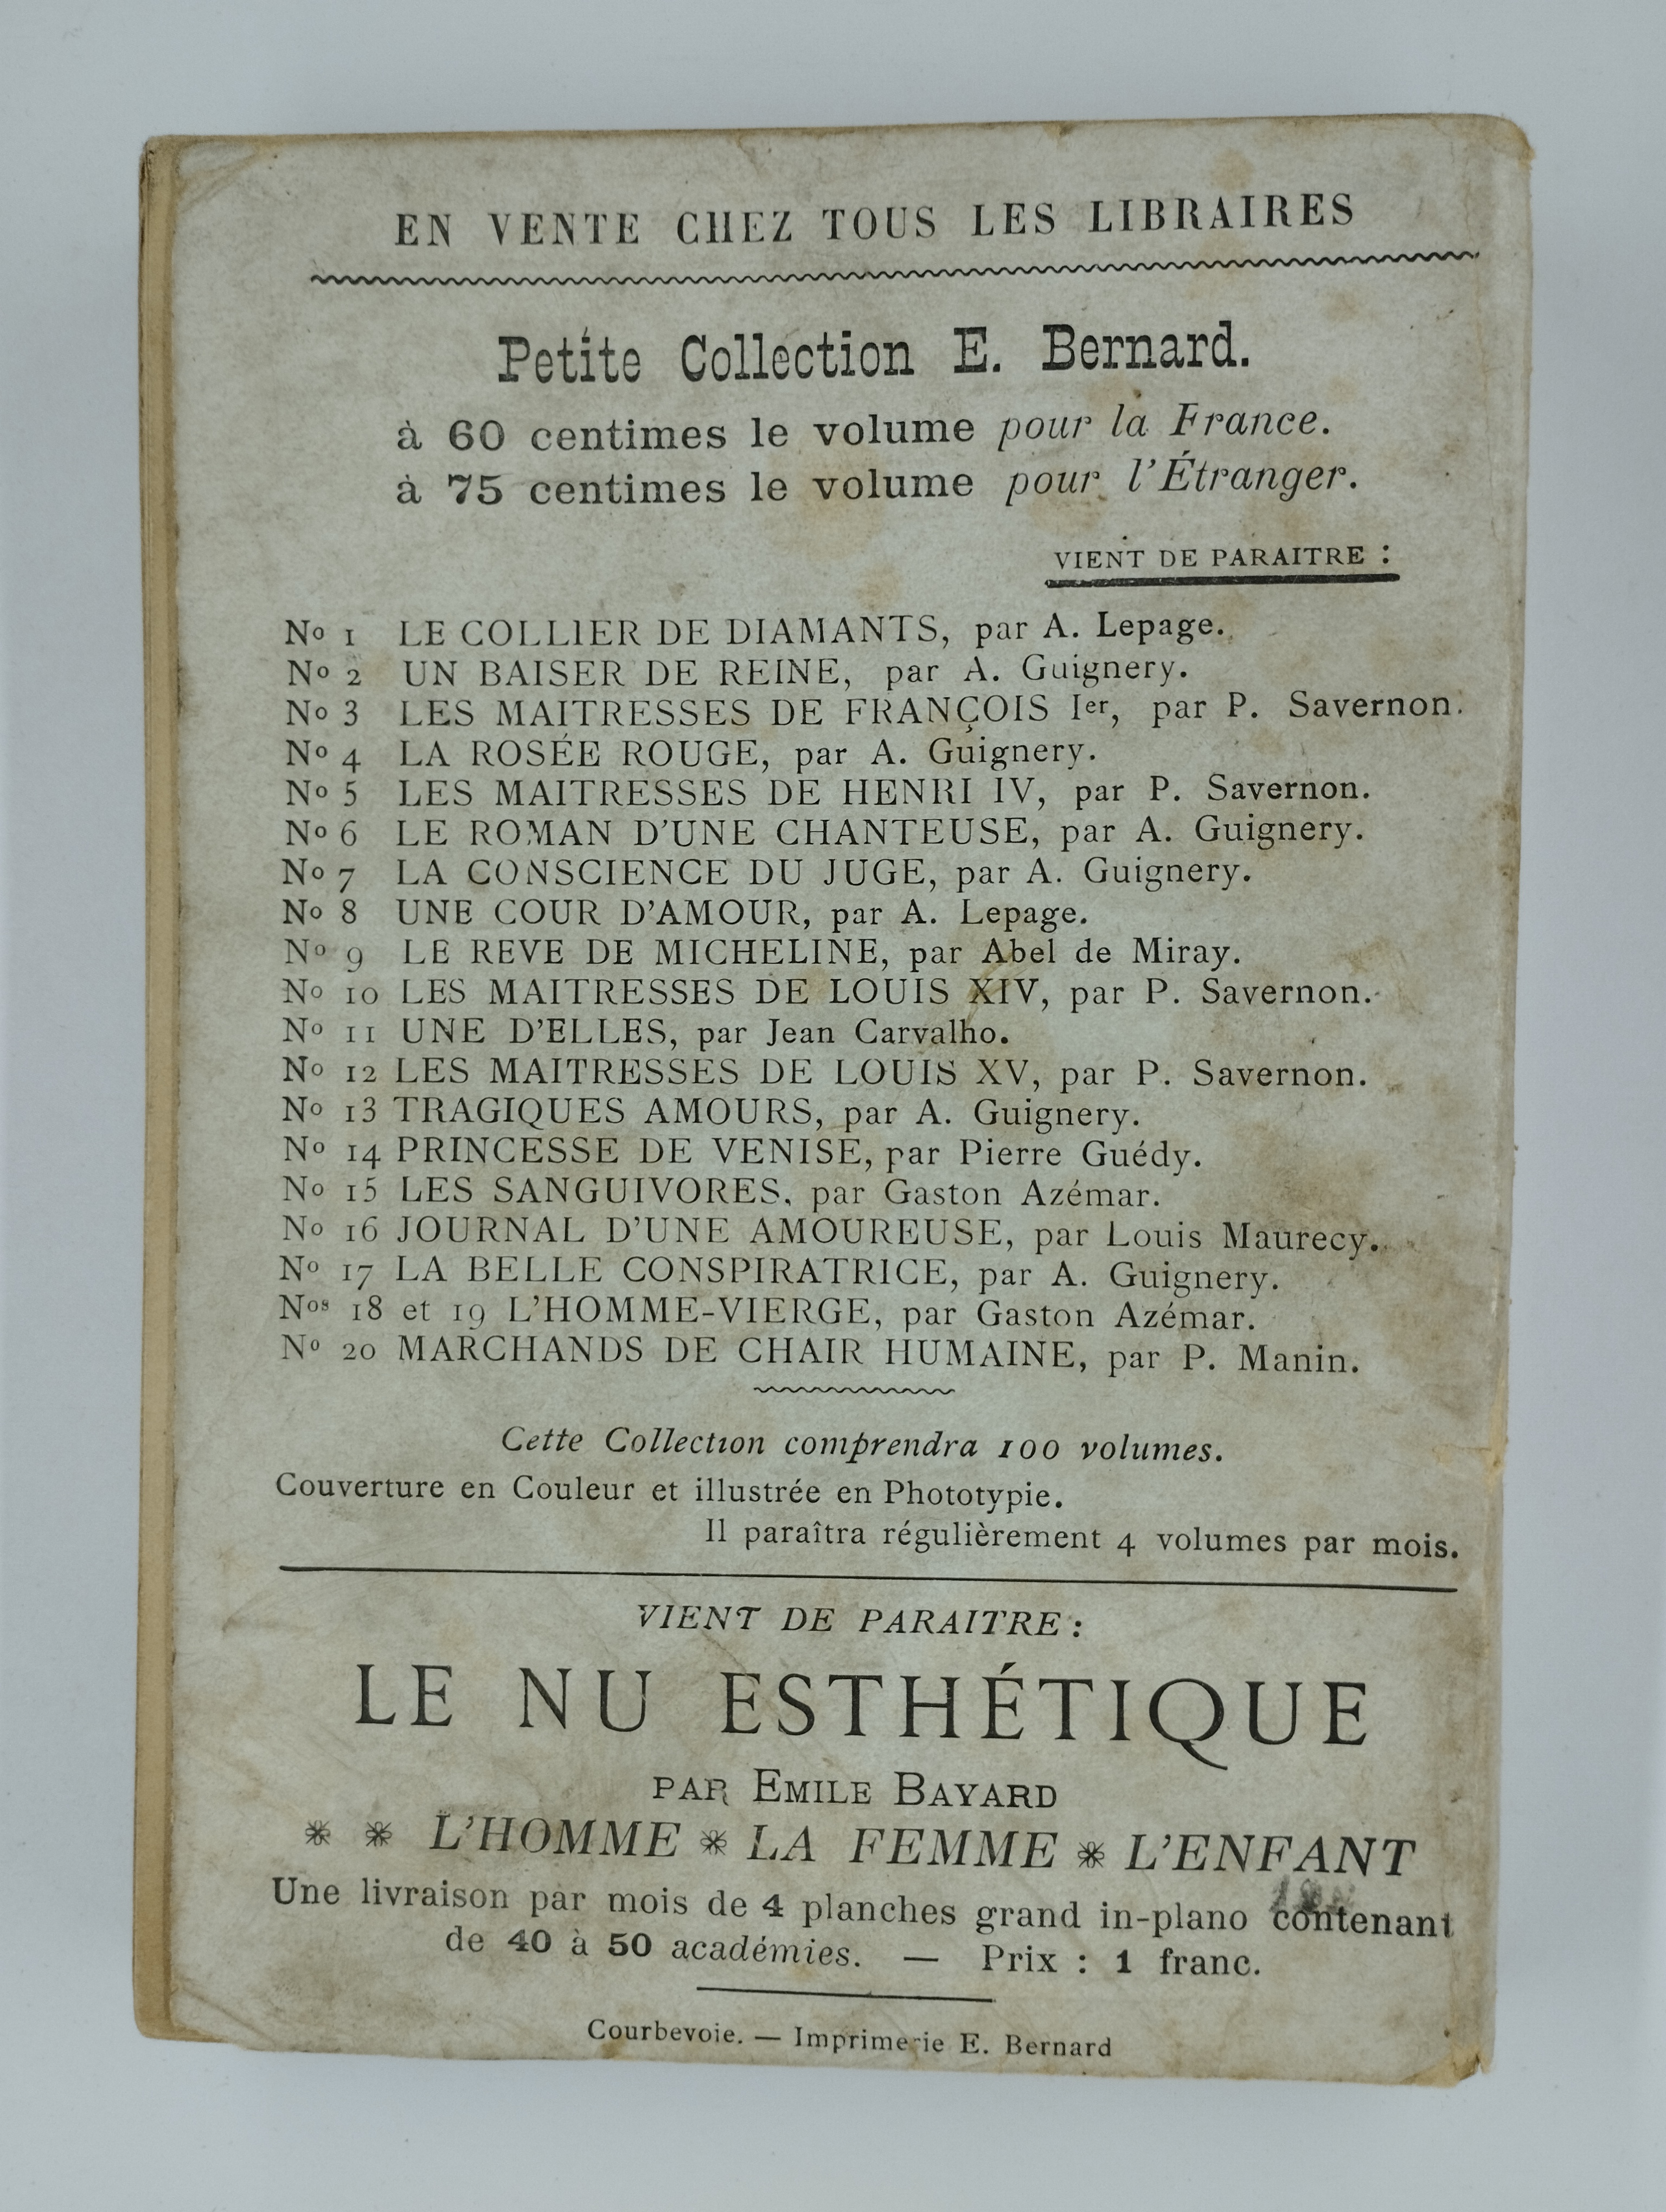 EN VENTE CHEZ TOUS LES LIBRAIRES
Petite Collection E. Bernard.
à 60 centimes le volume pour la France.
à 75 centimes le volume pour l'Étranger.
VIENT DE PARAITRE :
No 1 LE COLLIER DE DIAMANTS, par A. Lepage.
No 2 UN BAISER DE REINE, par A. Guignery.
No 3 LES MAITRESSES DE FRANÇOIS Ier, par P. Savernon.
No 4 LA ROSÉE ROUGE, par A. Guignery.
No 5 LES MAITRESSES DE HENRI IV, par P. Savernon.
No 6 LE ROMAN D'UNE CHANTEUSE, par A. Guignery.
No 7 LA CONSCIENCE DU JUGE, par A. Guignery.
No 8 UNE COUR D'AMOUR, par A. Lepage.
No 9 LE REVE DE MICHELINE, par Abel de Miray.
No 10 LES MAITRESSES DE LOUIS XIV, par P. Savernon.
No 11 UNE D'ELLES, par Jean Carvalho.
No 12 LES MAITRESSES DE LOUIS XV, par P. Savernon.
No 13 TRAGIQUES AMOURS, par A. Guignery.
No 14 PRINCESSE DE VENISE, par Pierre Guédy.
No 15 LES SANGUIVORES, par Gaston Azémar.
No 16 JOURNAL D'UNE AMOUREUSE, par Louis Maurecy.
No 17 LA BELLE CONSPIRATRICE, par A. Guignery.
Nos 18 et 19 L'HOMME-VIERGE, par Gaston Azémar.
No 20 MARCHANDS DE CHAIR HUMAINE, par P. Manin.
Cette Collection comprendra 100 volumes.
Couverture en Couleur et illustrée en Phototypie.
Il paraîtra régulièrement 4 volumes par mois.
VIENT DE PARAITRE :
LE NU ESTHÉTIQUE
PAR EMILE BAYARD
* * L'HOMME * LA FEMME * L'ENFANT
Une livraison par mois de 4 planches grand in-plano contenant
de 40 à 50 académies. — Prix : 1 franc.
Courbevoie. — Imprimerie E. Bernard